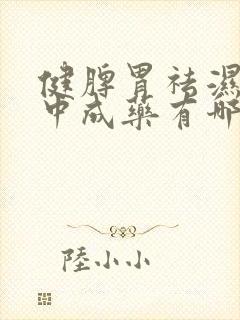 健脾胃祛濕
中成藥有哪
陸小小